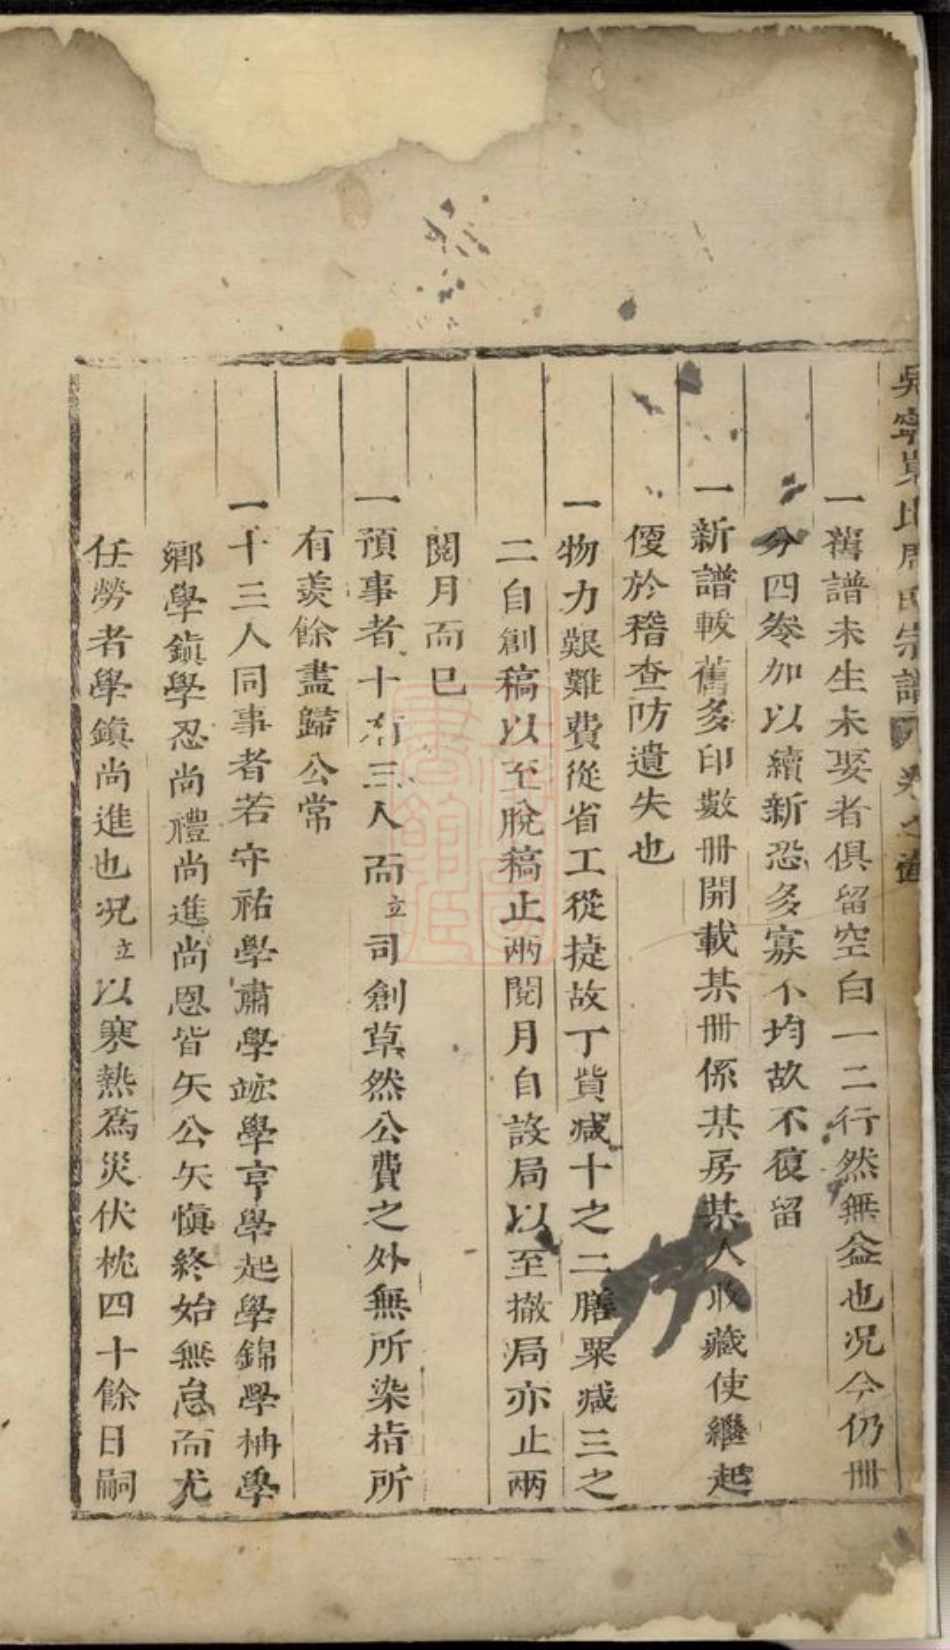 吳寧 氏周氏宗譜 卷之
一舊譜未生未娶者俱留空白一二行然無益也况今仍冊
分四卷加以續新恐多寡不均故不復留
一新譜較舊多印數冊開載某冊係某房某人收藏使繼起
便於稽查防遺失也
一物力艱難費從省工從捷故丁貲减十之二膳粟减三之
二自創稿以至脫稿止兩閱月自設局以至撤局亦止兩
閱月而已
一預事者十有三人而立司創草然公費之外無所染指所
有羨餘盡歸公常
一十三人同事者若守祐學肅學 學亨學起學錦學柟學
鄉學鎮學忍尚禮尚進尚恩皆矢公矢愼終始無怠而尤
任勞者學鎮尚進也况立以寒熱爲災伏枕四十餘日嗣